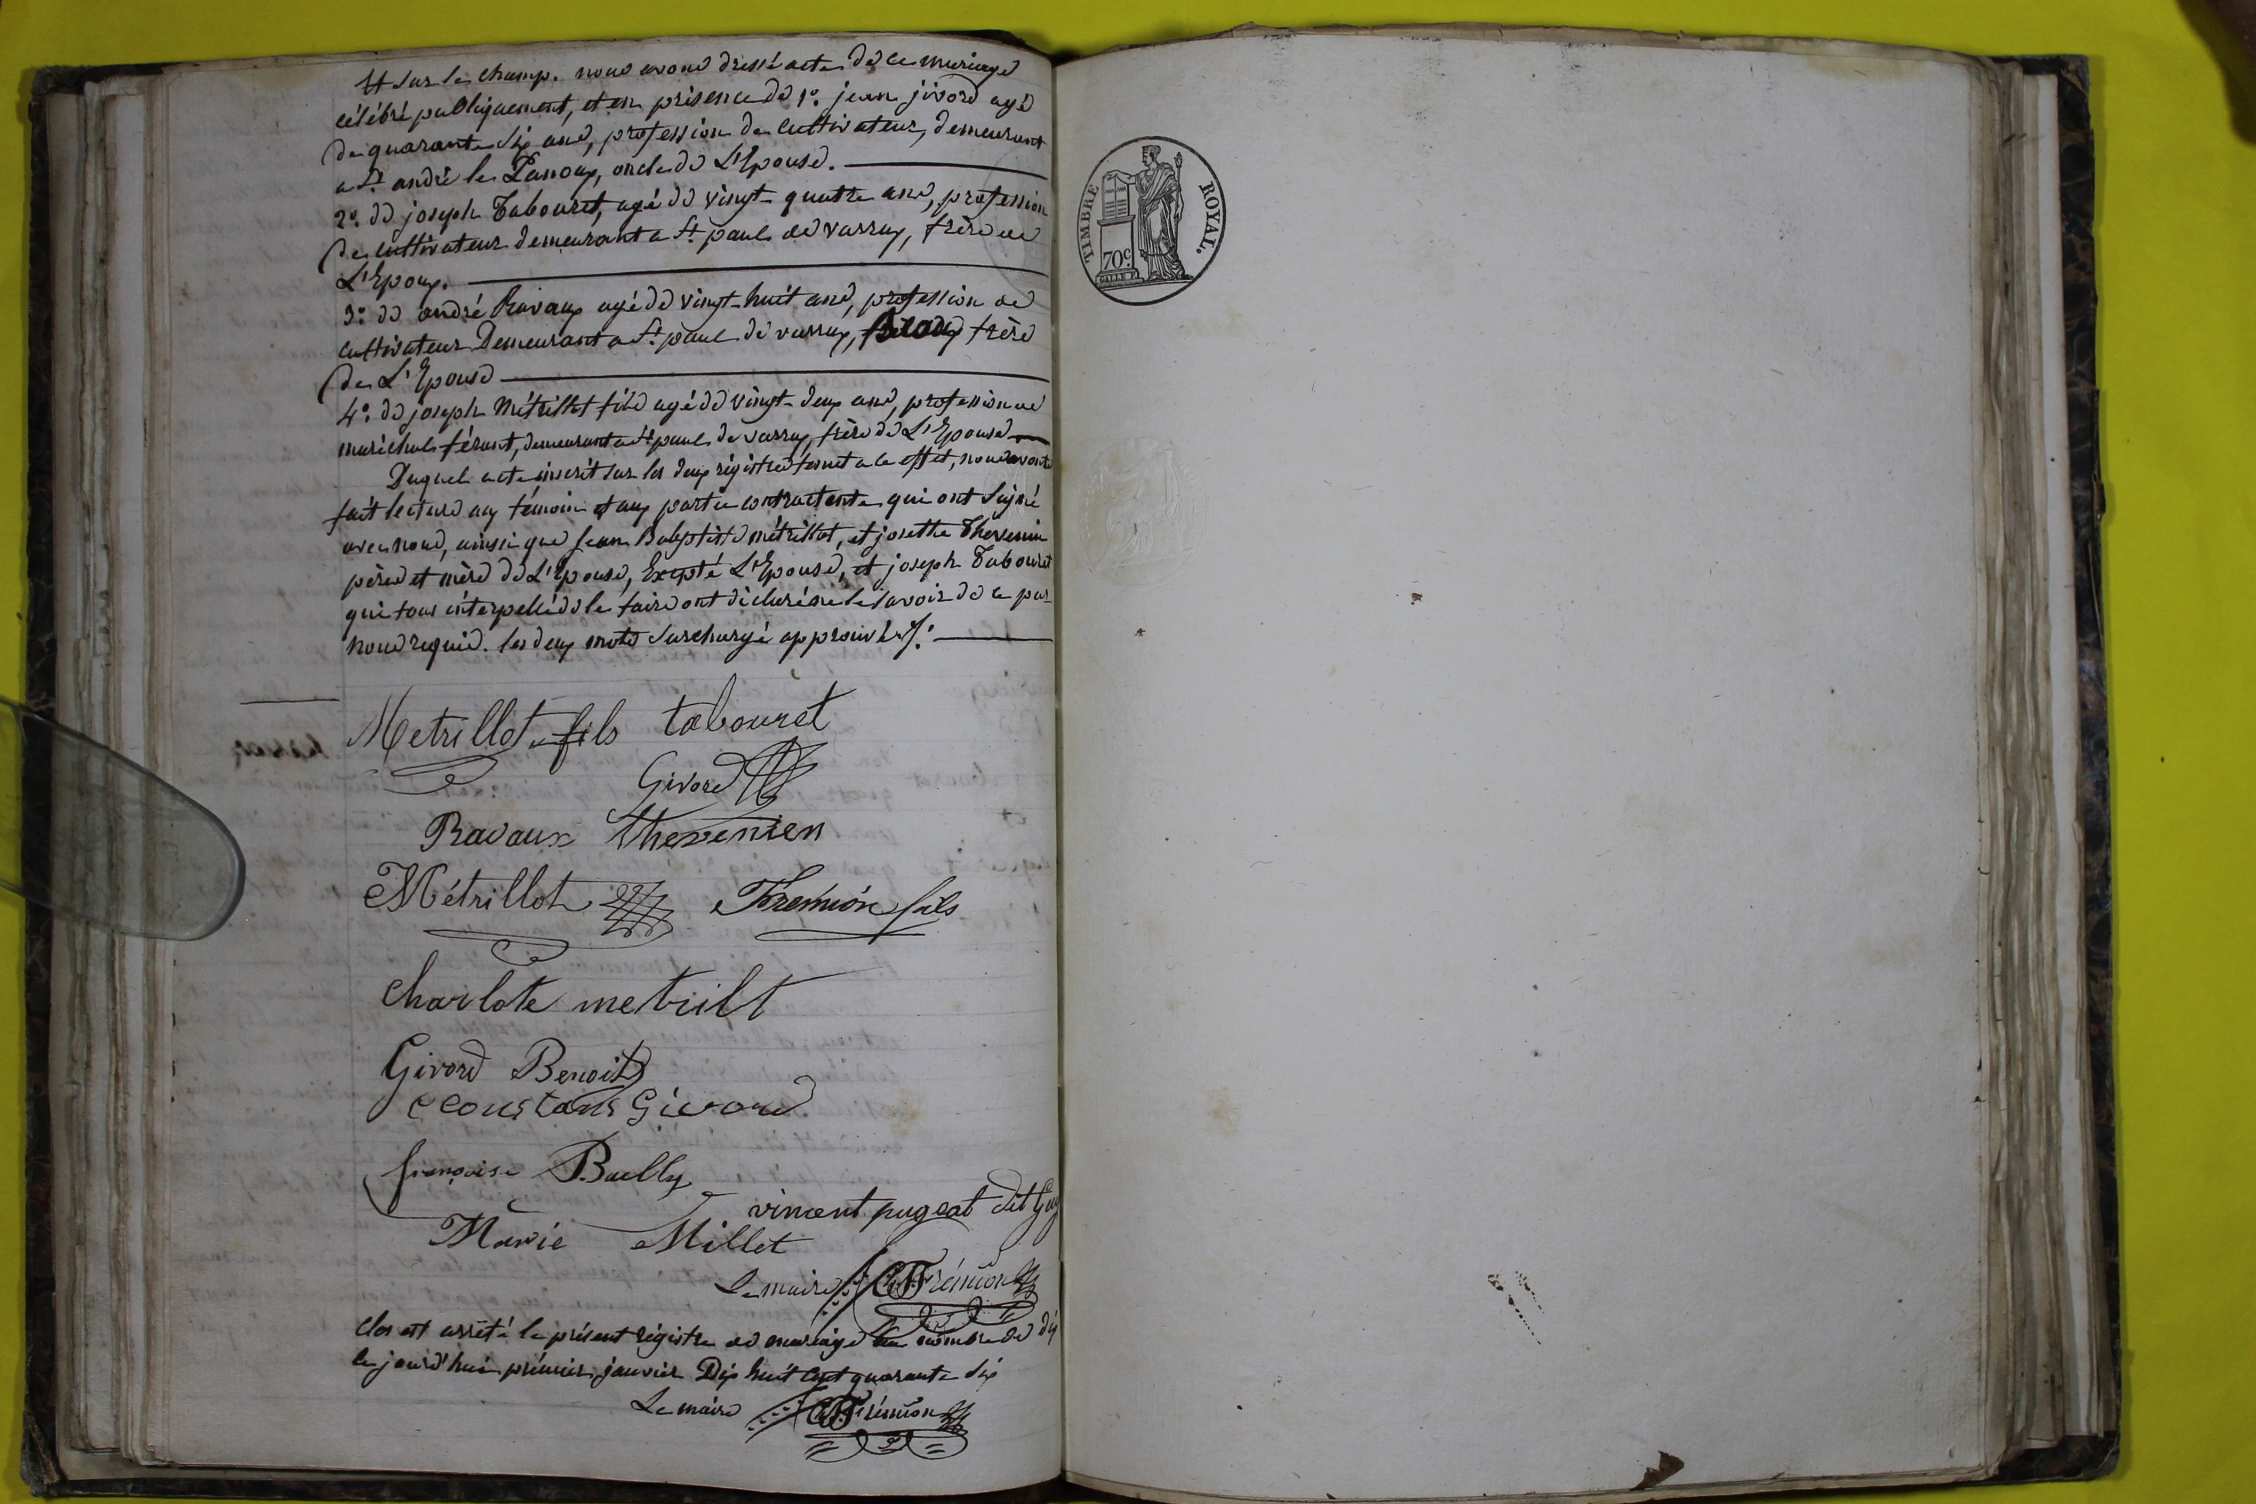 Et sur le champ. nous avons dressé acte de ce mariage
célébré publiquement, et en présence de 1°. jean jivord agé
de quarante six ans, profession de cultivateur, demeurant
a St. andré le Panoux, oncle de L'Epouse.
2°. de joseph Tabouret, agé de vingt-quatre ans, profession
de cultivateur demeurant a St. paul de varrax, frère de
L'Epoux.
3°. de andré Ravaux agé de vingt-huit ans, profession de
cultivateur Demeurant a St. paul de varrax, Beau frère
de L'Epouse
4°. de joseph Métrillot fils agé de vingt-deux ans, profession de
maréchal férant, demeurant a St. paul de varrax, frère de L'Epouse
Duquel acte inscrit sur les deux régistres tenut a ce effet, nous avons
fait lecture aux témoins et aux partie contractente qui ont signé
avec nous, ainsi que jean Babptiste métrillot, et josette Thevenin
père et mère de L'Epouse, Excepté L'Epouse, et joseph Tabouret
qui tous interpellé de le faire ont déclaré ne le savoir de ce par
nous requis. les deux mots surchargé approuvé
Metrillot fils tabouret
Givord
Ravaux thevenien
Métrillot Frémion fils
Charlote metrilt
Givord Benoit
Constans Givord
françoise Bailly
vincent pugeat dit Guy
Marie Millet
Le maire Frémion
Clos est arrêté le présent régistre de mariage au nombre de dix
le jourd'hui prémier janvier Dix huit cent quarante six
Le maire Frémion
TIMBRE ROYAL.
70c.